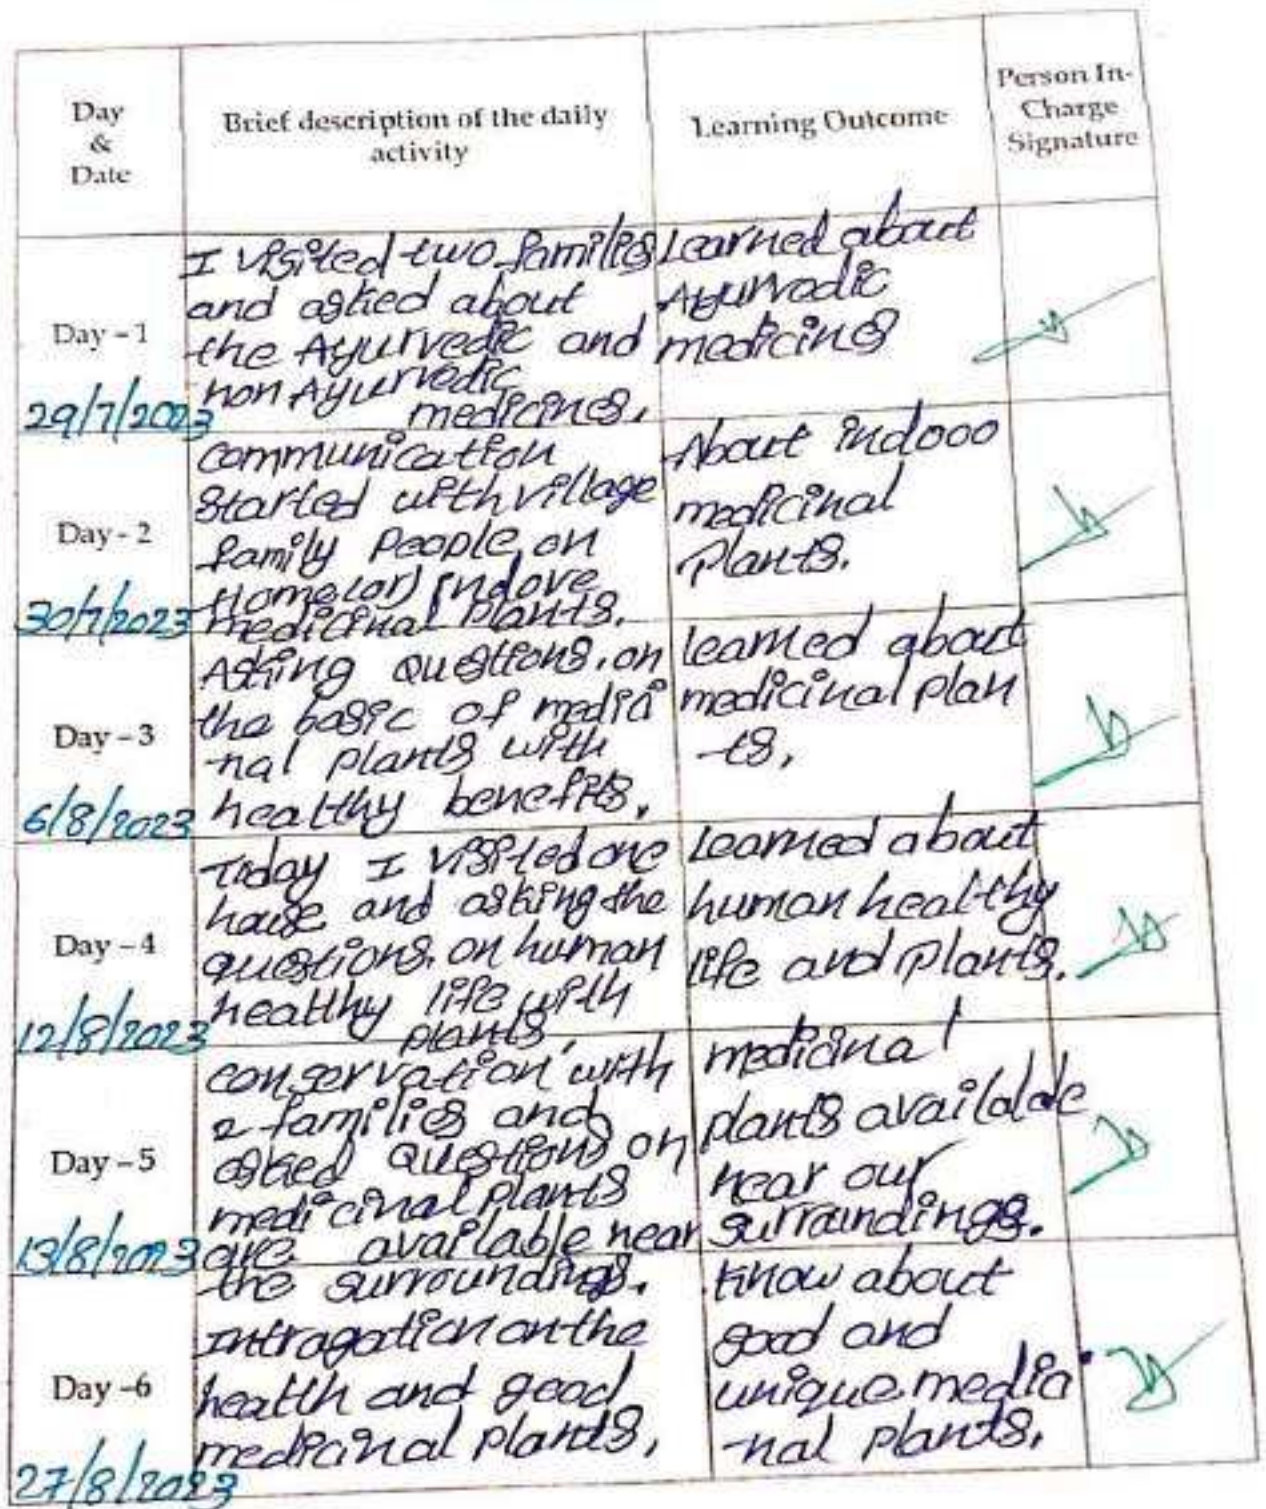 Day
&
Date
Brief description of the daily
activity
Learning Outcome
Person In-
Charge
Signature
Day - 1
29/7/2023
I visited two families
and asked about
the Ayurvedic and
non Ayurvedic
medicines.
Learned about
Ayurvedic
medicines
Day - 2
30/7/2023
communication
started with village
family people on
Home(or) indove
medicinal plants.
About indooo
medicinal
plants.
Day - 3
6/8/2023
Asking questions on
the basic of medici
nal plants with
healthy benefits.
learned about
medicinal plan
-ts,
Day - 4
12/8/2023
Today I visited one
house and asking the
questions on human
healthy life with
plants,
Learned about
human healthy
life and plants.
Day - 5
13/8/2023
conservation with
2 families and
asked questions on
medicinal plants
are available near
the surroundings.
medicinal
plants available
near our
surroundings.
Day -6
27/8/2023
on the
health and good
medicinal plants,
know about
good and
unique medici
-nal plants,